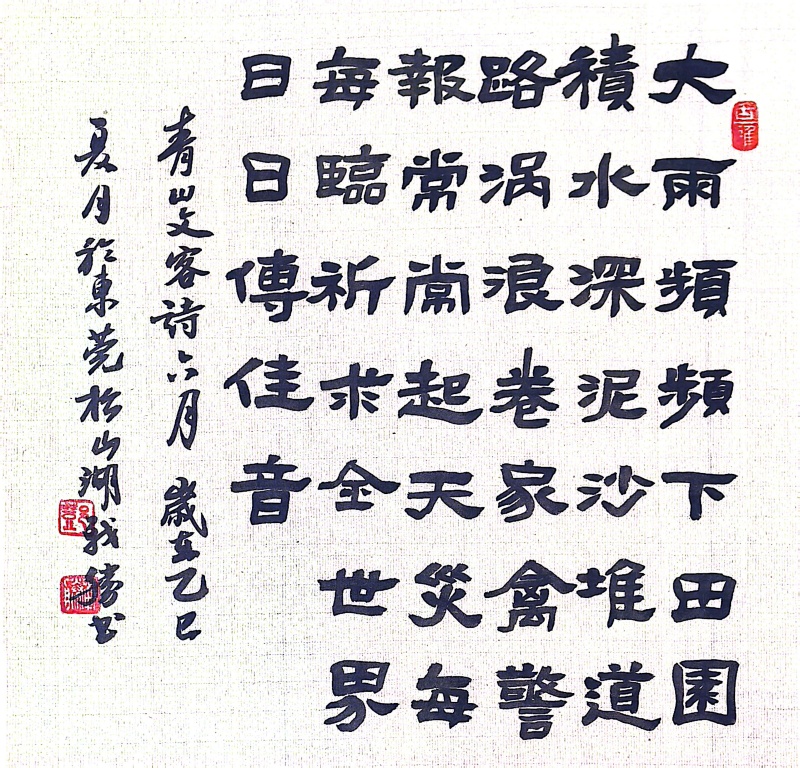 大雨頻頻下田園
積水深泥沙堆道
路涡浪卷家禽警
報常常起天災每
每臨祈求金世界
日日傳佳音
青山文客詩六月 歲在乙巳
夏月於東莞松山湖戰勝书